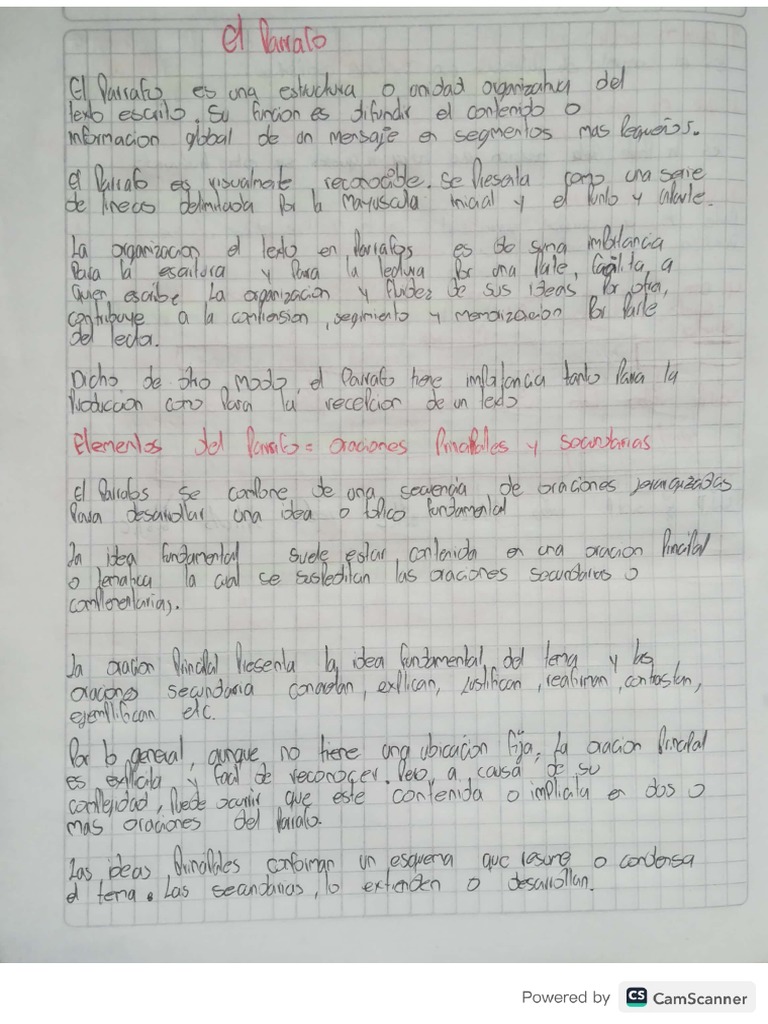 El Parrafo
El Parrafo es una estructura o unidad organizativa del
texto escrito. Su funcion es difundir el contenido o
informacion global de un mensaje en segmentos mas Pequeños.
el Parrafo es visualmente reconocible. Se Presenta como una serie
de lineas delimitada Por la Mayuscula inicial y el Punto y aparte.
La organizacion el texto en Parrafos es de suma importancia
Para la escritura y Para la lectura Por una Parte, facilita, a
quien escribe, La organizacion y fluidez de sus ideas Por otra,
contribuye a la comprension, segimiento y memorizacion Por Parte
del lector.
Dicho de otro modo, el Parrafo tiene importancia tanto Para la
Produccion como Para la recepcion de un texto
Elementos del Parrafo = oraciones Principales y secundarias
El Parrafos se compone de una secuencia de oraciones jerarquizadas
Para desarrollar una idea o topico fundamental
La idea fundamental suele estar contenida en una oracion Principal
o tematica la cual se suspeditan las oraciones secundarias o
complementarias.
La oracion Principal Presenta la idea fundamental del tema y las
oraciones secundaria conectan, explican, justifican, reafirman, contrastan,
ejemplifican etc.
Por lo general, aunque no tiene una ubicacion fija, la oracion Principal
es explicita y facil de reconocer. Pero, a causa de su
complejidad, Puede ocurrir que este contenida o implicita en dos o
mas oraciones del Parrafo.
Las ideas Principales conforman un esquema que resume o condensa
el tema. Las secundarias, lo extienden o desarrollan.
Powered by CS CamScanner